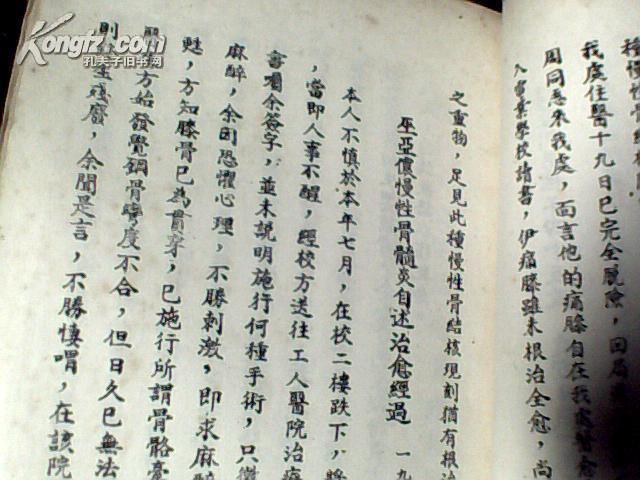 Kongfz.com
孔夫子旧书网
種慢性骨
我處住醫十九日已完全脫險，回局
周同志來我處，面言他的痛膝自在我處醫愈
入營業學校讀書，伊痛膝雖未根治全愈，尚
之重物，足見此種慢性骨結核現刻猶有根治
巫亞儂慢性骨髓炎自述治愈經過 一九
本人不慎於本年七月，在校二樓跌下，將
，當即人事不醒，經校方送往工人醫院治療
會囑余簽字，並未說明施行何種手術，只
麻醉，余因恐懼心理，不勝刺激，即求麻醉
甦，方知膝骨已為貫穿，已施行所謂骨骼牽
方始發覺鋼骨寧度不合，但日久已無法
則 生殘廢，余聞是言，不勝悽喟，在該院